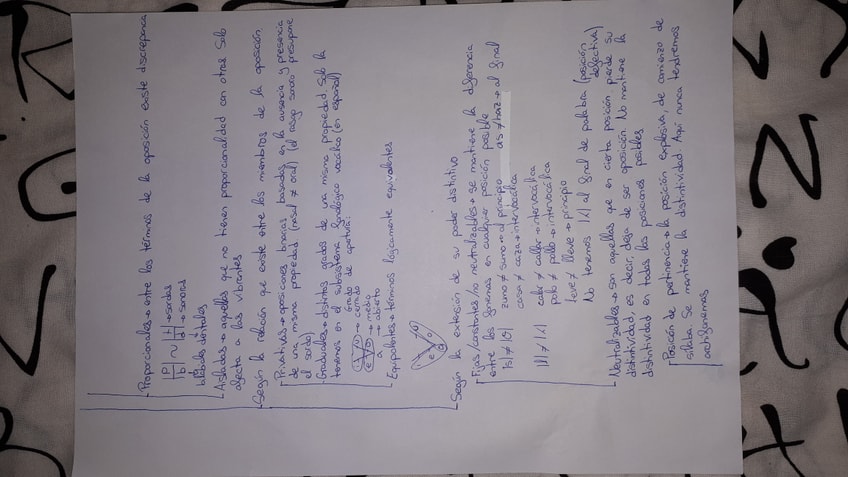 Proporcionales → entre los términos de la oposición existe discrepancia
|p| ~ |t| → sordas
|b| |d| → sonoras
↓ ↓
bilabiales dentales
Aisladas → aquellas que no tienen proporcionalidad con otras. Solo
afecta a las vibrantes
Según la relación que existe entre los miembros de la oposición
Privativas → oposiciones binarias basadas en la ausencia y presencia
de una misma propiedad (nasal ≠ oral) (el rasgo sonoro presupone
el sordo)
Graduales → distintos grados de una misma propiedad. Solo la
tenemos en el subsistema fonológico vocálico (en español)
Grado de apertura:
i u → cerrado
e o → medio
a → abierto
Equipolentes → términos lógicamente equivalentes
i u
e o
a
Según la extensión de su poder distintivo
Fijas/constantes/no neutralizables → se mantiene la diferencia
entre los fonemas en cualquier posición posible
|s| ≠ |θ| zumo ≠ sumo → al principio as ≠ haz → al final
casa ≠ caza → intervocálica
|l| ≠ |ʎ| calar ≠ callar → intervocálica
polo ≠ pollo → intervocálica
leve ≠ lleve → principio
No tenemos |ʎ| al final de palabra (posición
defectiva)
Neutralizables → son aquellas que en cierta posición pierde su
distintividad, es decir, deja de ser oposición. No mantiene la
distintividad en todas las posiciones posibles
Posición de pertinencia → la posición explosiva, de comienzo de
sílaba. Se mantiene la distintividad. Aquí nunca tendremos
archifonemas